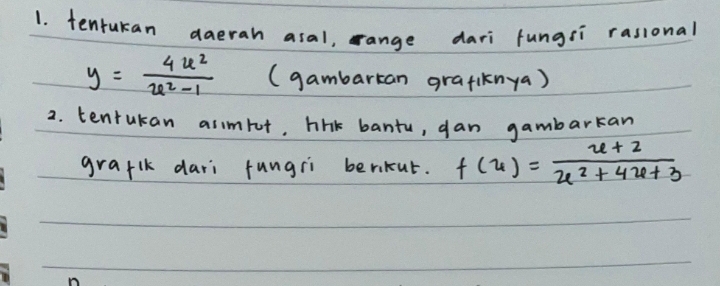 1. tentukan daerah asal, range dari fungsi rasional
y = 4x²/x²-1 (gambarkan grafiknya)
2. tentukan asimtut, titik bantu, dan gambarkan
grafik dari fungsi berikut. f(x) = x+2/x²+4x+3